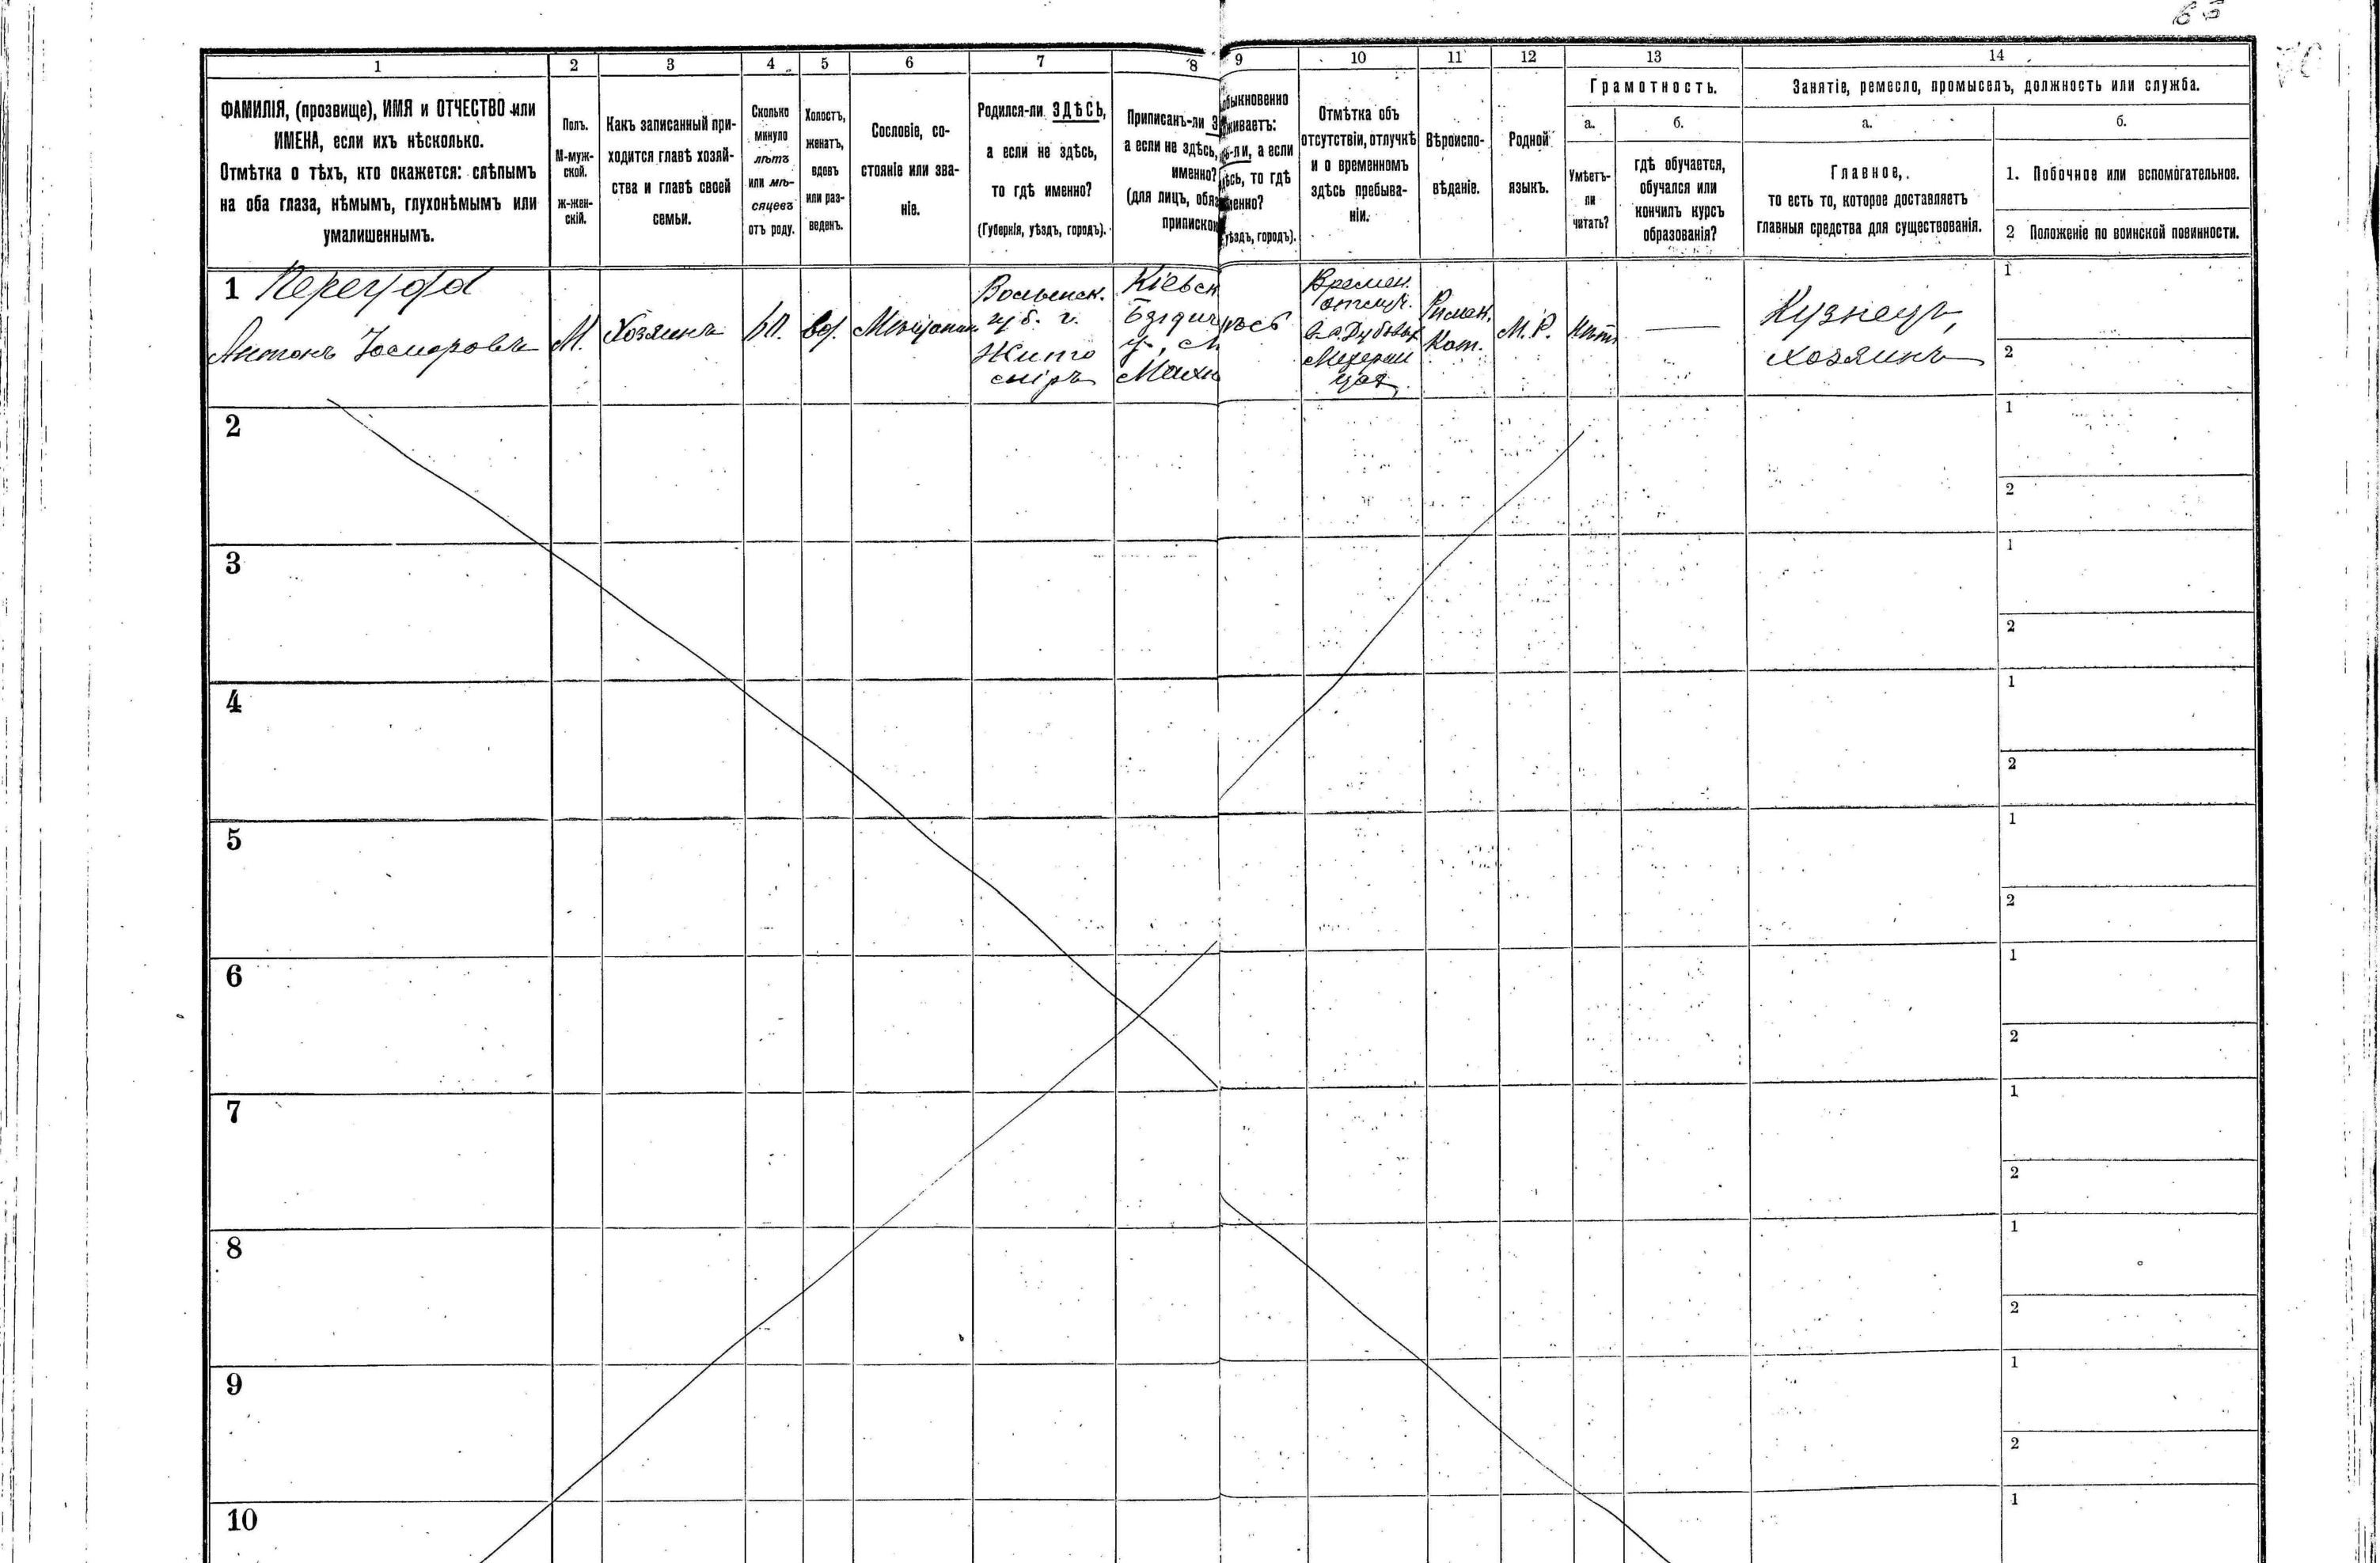 66
1 2 3 4 5 6 7 8 9 10 11 12 13 14
ФАМИЛІЯ, (прозвище), ИМЯ и ОТЧЕСТВО или
ИМЕНА, если ихъ нѣсколько.
Отмѣтка о тѣхъ, кто окажется: слѣпымъ
на оба глаза, нѣмымъ, глухонѣмымъ или
умалишеннымъ.
Полъ.
М-муж-
ской.
ж-жен-
скій.
Какъ записанный при-
ходится главѣ хозяй-
ства и главѣ своей
семьи.
Сколько
минуло
лѣтъ
или мѣ-
сяцевъ
отъ роду.
Холостъ,
женатъ,
вдовъ
или раз-
веденъ.
Сословіе, со-
стояніе или зва-
ніе.
Родился-ли ЗДѢСЬ,
а если не здѣсь,
то гдѣ именно?
(Губернія, уѣздъ, городъ).
Приписанъ-ли З
а если не здѣсь,
именно?
(для лицъ, обяз
припиской
быкновенно
живаетъ:
ь-ли, а если
ѣсь, то гдѣ
менно?
уѣздъ, городъ).
Отмѣтка объ
отсутствіи, отлучкѣ
и о временномъ
здѣсь пребыва-
ніи.
Вѣроиспо-
вѣданіе.
Родной
языкъ.
Грамотность.
а.
Умѣетъ-
ли
читать?
б.
гдѣ обучается,
обучался или
кончилъ курсъ
образованія?
Занятіе, ремесло, промыселъ, должность или служба.
а.
Главное,
то есть то, которое доставляетъ
главныя средства для существованія.
б.
1. Побочное или вспомогательное.
2 Положеніе по воинской повинности.
1
Антонъ
М.
Хозяинъ
вд.
Мѣщанин
Волынск.
губ. г.
Жито
міръ
Кіевск
у., м
Махн
Времен.
отлуч.
Римск.
Кат.
М. Р.
Нѣтъ
Кузнецъ,
хозяинъ
1
2
2
1
2
3
1
2
4
1
2
5
1
2
6
1
2
7
1
2
8
1
2
9
1
2
10
1